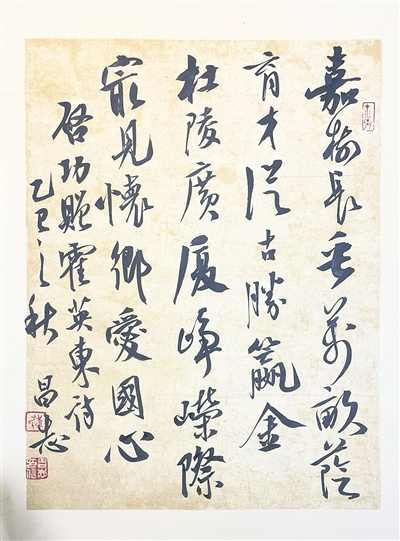 嘉榆長垂萬畝蔭
育才從古勝籯金
杜陵廣厦崢嶸際
最見懷鄉愛國心
啓功贈霍英東詩
乙巳之秋 昌忠